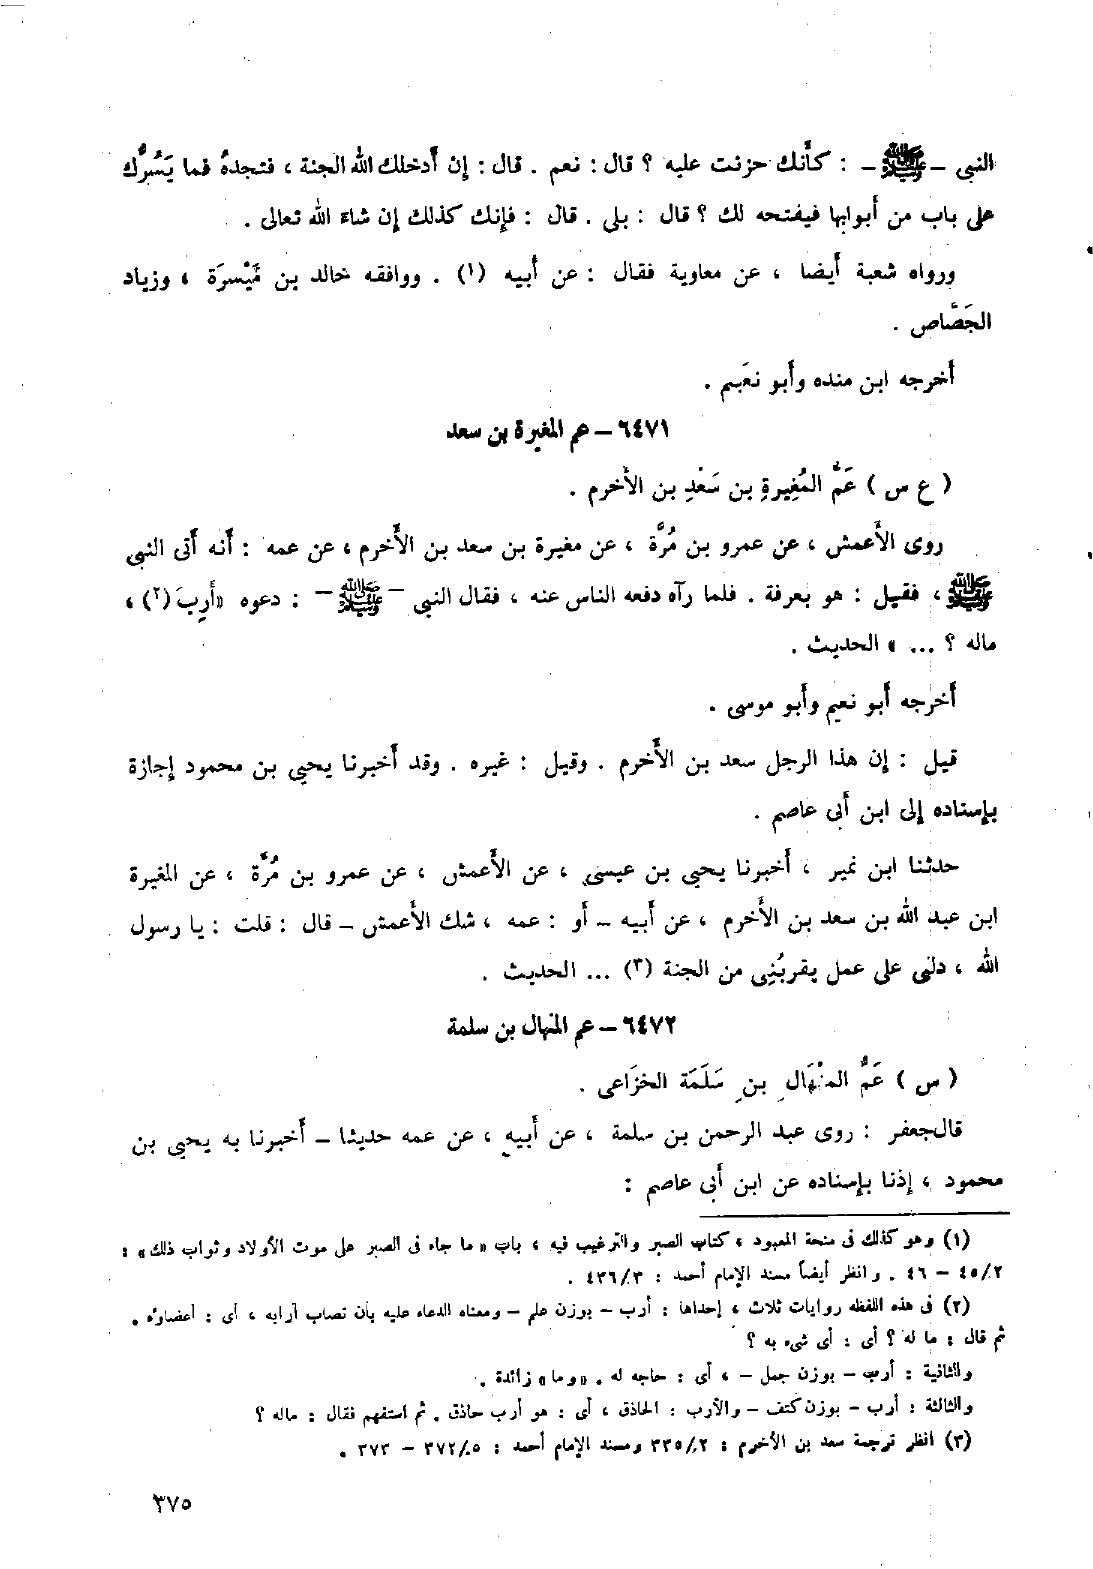 النبى – ﷺ – : كأَنك حزنت عليه ؟ قال : نعم . قال : إِن أَدخلك الله الجنة ، فتجدهُ فما يَسُرُّك
على باب من أَبوابها فيفتحه لك ؟ قال : بلى . قال : فإِنك كذلك إِن شاءَ الله تعالى .
ورواه شعبة أَيضا ، عن معاوية فقال : عن أَبيه (١) . ووافقه خالد بن مَيْسرَة ، وزياد
الجَصَّاص .
أَخرجه ابن منده وأَبو نعَيم .
٦٤٧١ – عم المغيرة بن سعد
( ع س ) عَمُّ المُغِيرةِ بن سَعْدِ بن الأَخرم .
روى الأَعمش ، عن عمرو بن مُرَّة ، عن مغيرة بن سعد بن الأَخرم ، عن عمه : أَنه أَتى النبي
ﷺ ، فقيل : هو بعرفة . فلما رآه دفعه الناس عنه ، فقال النبي – ﷺ – : دعوه «أَرِبَ (٢) ،
ماله ؟ ... » الحديث .
أَخرجه أَبو نعيم وأَبو موسى .
قيل : إِن هذا الرجل سعد بن الأَخرم . وقيل : غيره . وقد أَخبرنا يحيى بن محمود إِجازة
بإِسناده إِلى ابن أَبى عاصم .
حدثنا ابن نمير ، أَخبرنا يحيى بن عيسى ، عن الأَعمش ، عن عمرو بن مُرَّة ، عن المغيرة
ابن عبد الله بن سعد بن الأَخرم ، عن أَبيه – أَو : عمه ، شك الأَعمش – قال : قلت : يا رسول
الله ، دلنى على عمل يقربُنِى من الجنة (٣) ... الحديث .
٦٤٧٢ – عم المنهال بن سلمة
( س ) عَمُّ المنْهَالِ بنِ سَلَمَة الخزَاعى .
قال جعفر : روى عبد الرحمن بن سلمة ، عن أَبيه ، عن عمه حديثا – أَخبرنا به يحيى بن
محمود ، إِذنا بإِسناده عن ابن أَبى عاصم :
(١) وهو كذلك فى منحة المعبود ، كتاب الصبر والترغيب فيه ، باب « ما جاء فى الصبر على موت الأولاد وثواب ذلك » :
٤٥/٢ – ٤٦ . وانظر أيضاً مسند الإمام أحمد : ٤٣٦/٣ .
(٢) فى هذه اللفظه روايات ثلاث ، إحداها : أرب – بوزن علم – ومعناه الدعاء عليه بأن تصاب آرابه ، أى : أعضاؤه .
ثم قال : ما له ؟ أى : أى شىء به ؟
والثانية : أرب – بوزن جمل – ، أى : حاجه له . «وما» زائدة .
والثالثة : أرب – بوزن كتف – والأرب : الحاذق ، أى : هو أرب حاذق . ثم استفهم فقال : ماله ؟
(٣) انظر ترجمة سعد بن الأخرم : ٣٣٥/٢ ومسند الإمام أحمد : ٣٧٢/٥ – ٣٧٣ .
٣٧٥